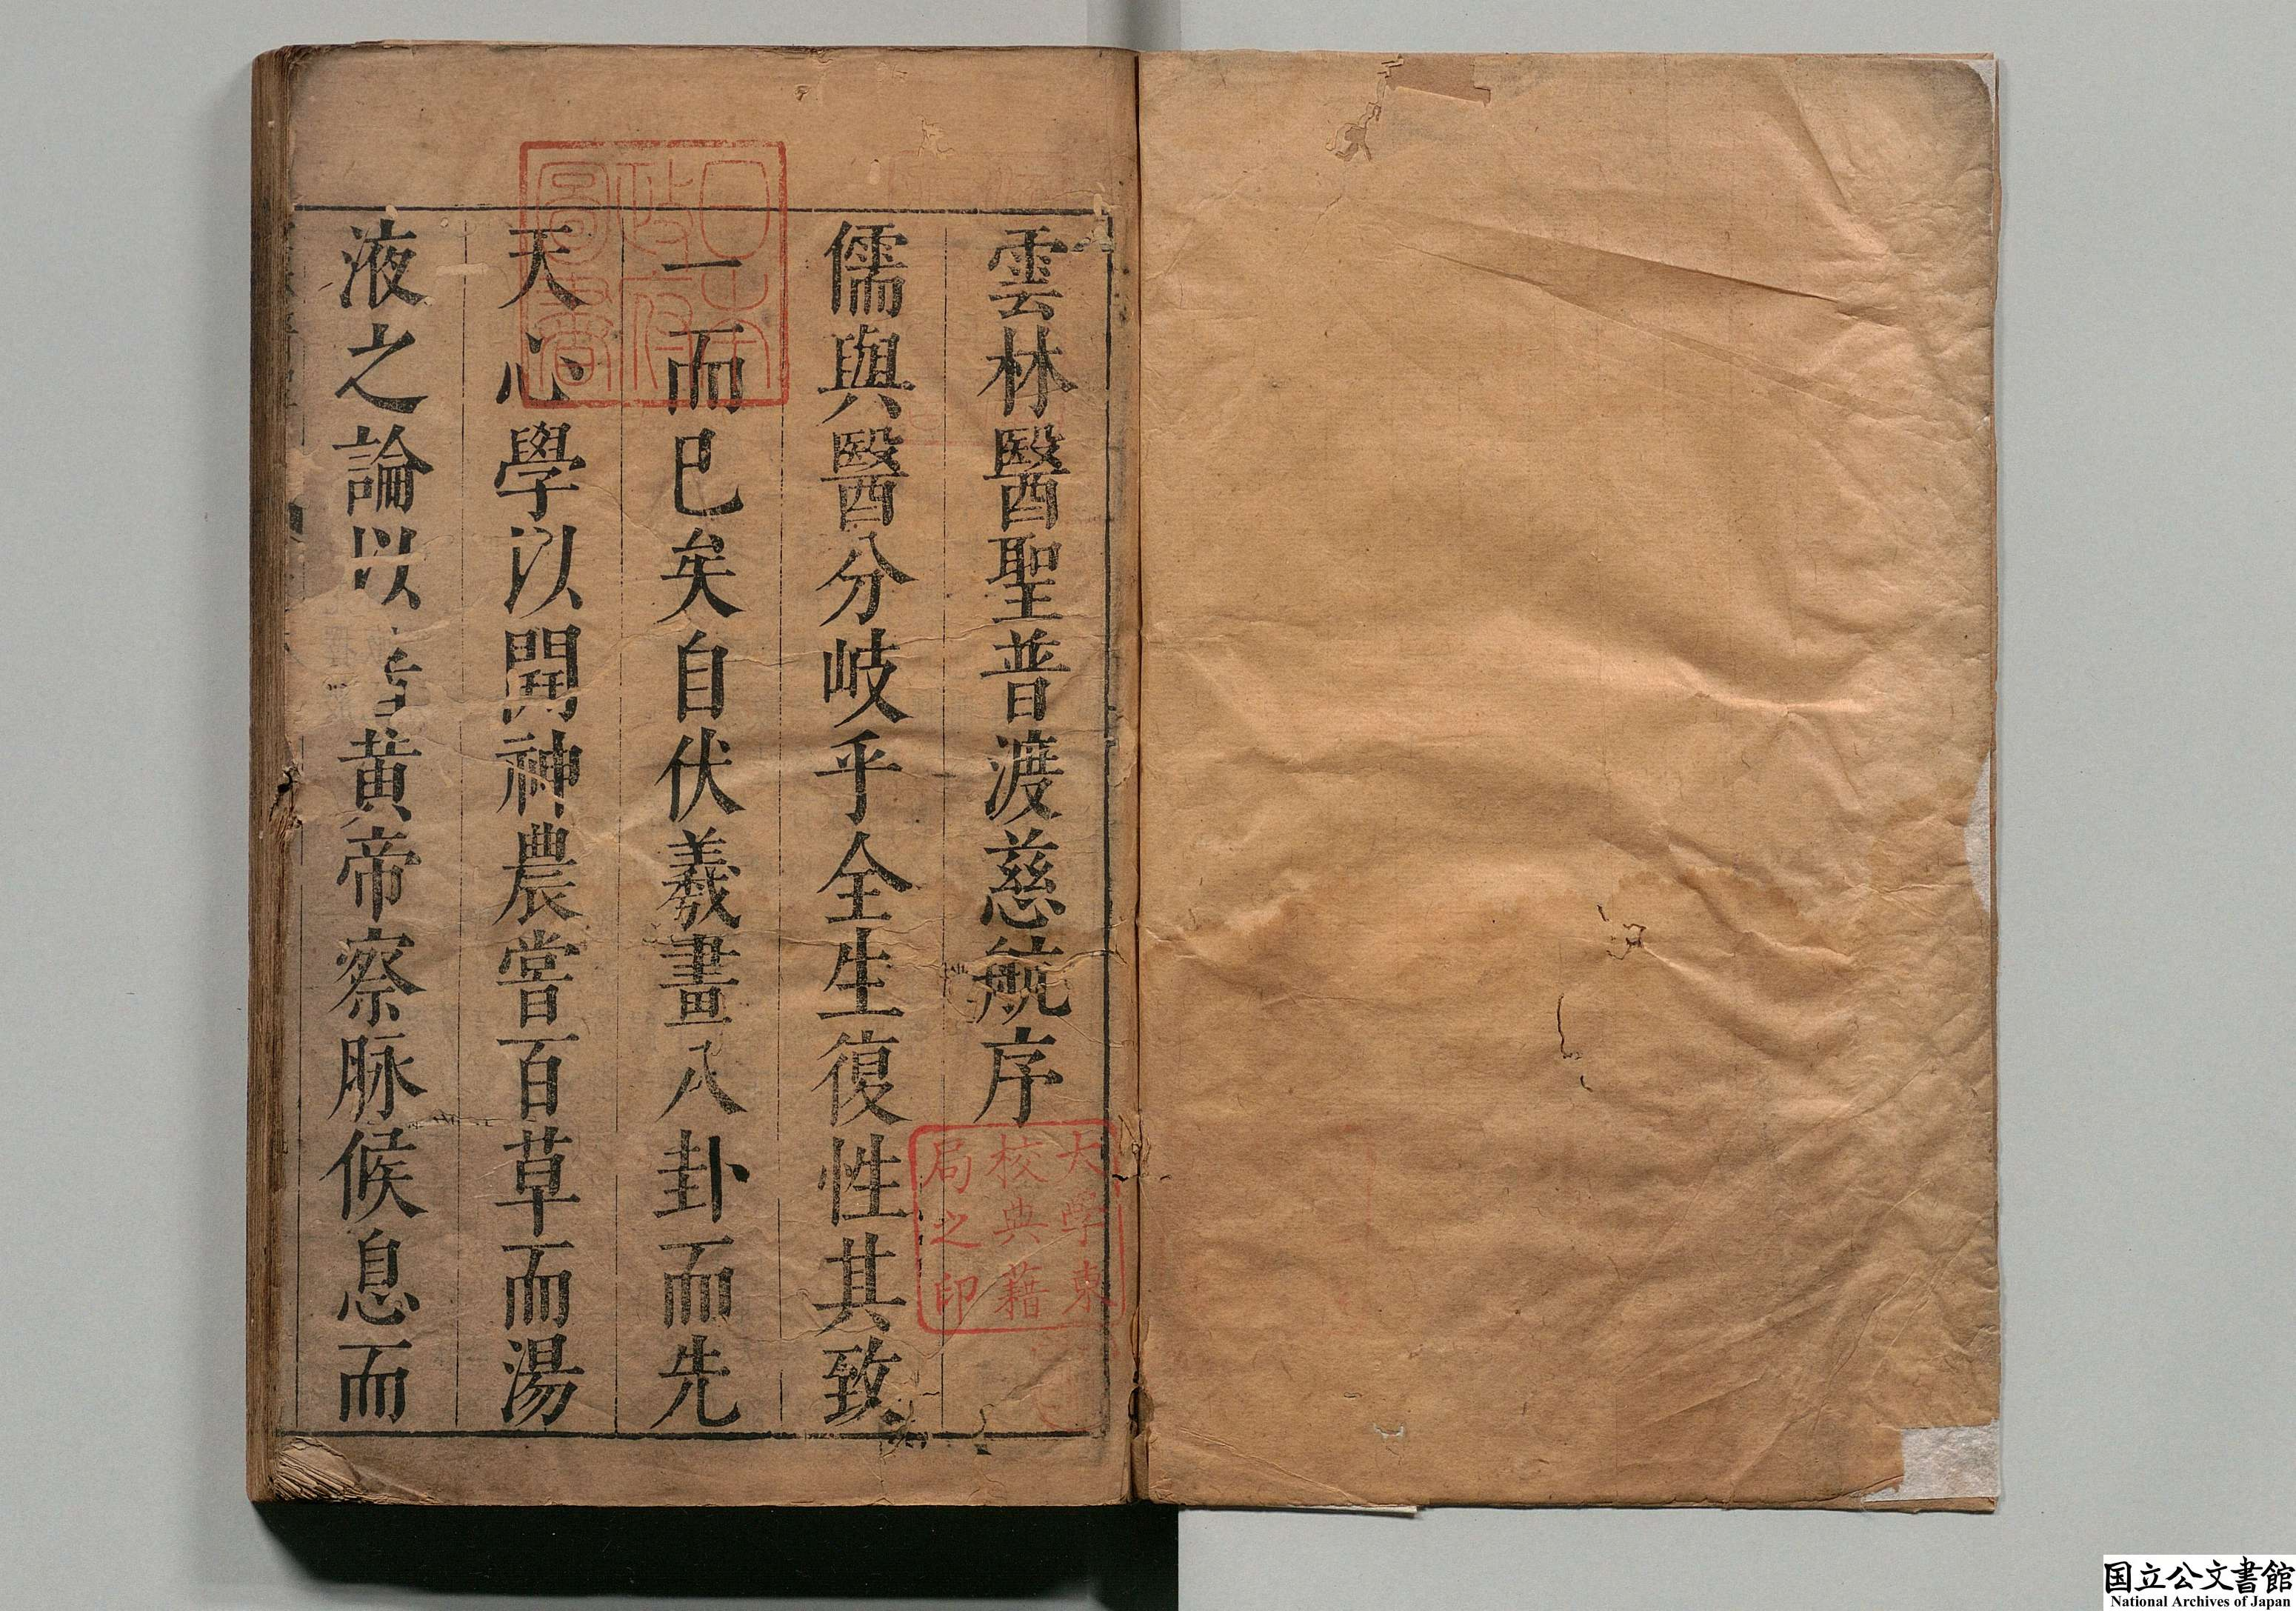 雲林醫聖普渡慈航序
儒與醫分岐乎全生復性其致
一而已矣自伏羲畫八卦而先
天心學以開神農嘗百草而湯
液之論以黄帝察脉候息而
日本政府圖書
大學東
校典藉
局之印
国立公文書館
National Archives of Japan